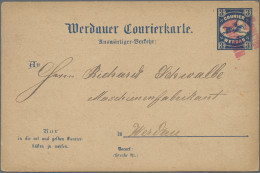 Werdauer Courierkarte.
Auswärtiger-Verkehr.
3 COURIER 3
An
Herrn Richard Schwalbe
Maschinenfabrikant
Nur
in die rot und gelben Courier-
kästen zu werfen.
in Werdau